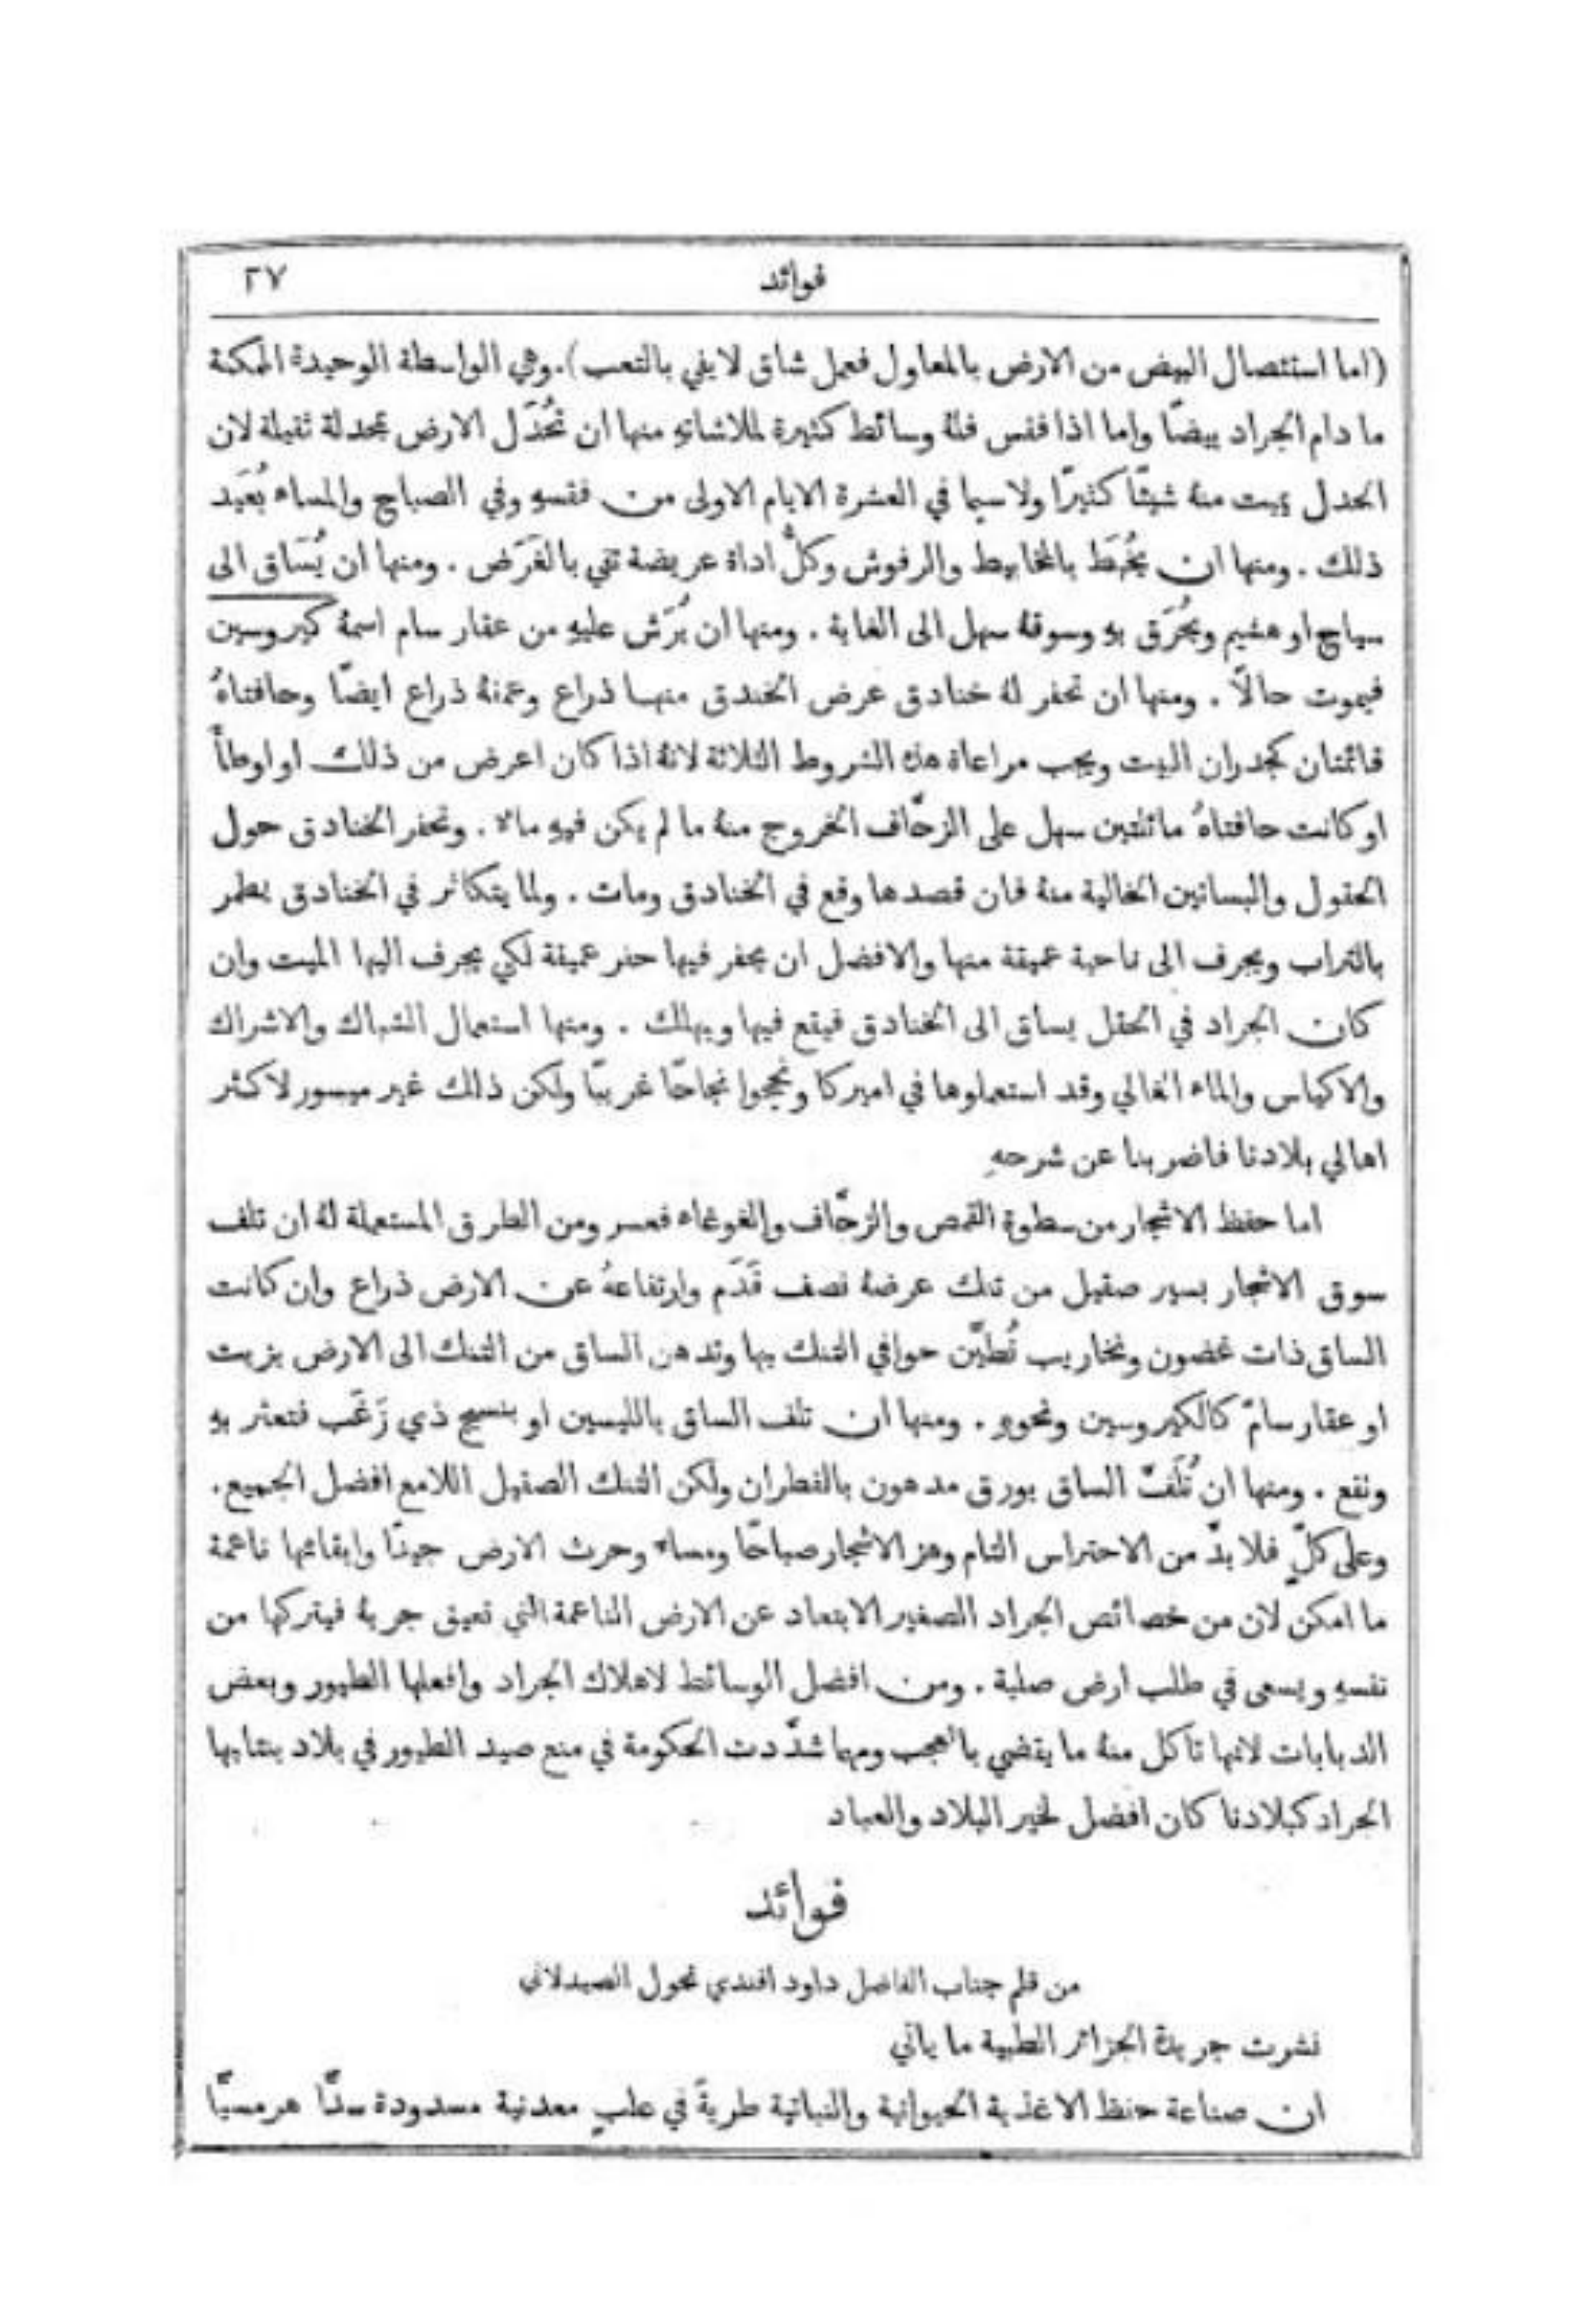 فوائد ٢٧
(اما استئصال البيض من الارض بالمعاول فعمل شاق لا يفي بالتعب). وهي الواسطة الوحيدة الممكنة
ما دام الجراد بيضًا واما اذا فقس فلهُ وسائط كثيرة لملاشاتهِ منها ان تُحْدَل الارض بمحدلة ثقيلة لان
الحدل يميت منهُ شيئًا كثيرًا ولا سيما في العشرة الايام الاولى من فقسهِ وفي الصباح والمساء بُعَيد
ذلك . ومنها ان يُخبَط بالمخابيط والرفوش وكلّ اداة عريضة تفي بالغَرَض . ومنها ان يُسَاق الى
سياج او هشيم ويُحرَق بهِ وسوقهُ سهل الى الغاية . ومنها ان يُرَش عليهِ من عقار سام اسمهُ كيروسين
فيموت حالًا . ومنها ان تحفر لهُ خنادق عرض الخندق منهـا ذراع وعمقهُ ذراع ايضًا وحافتاهُ
قائمتان كجدران البيت ويجب مراعاة هذه الشروط الثلاثة لانهُ اذا كان اعرض من ذلك او اوطأ
او كانت حافتاهُ مائلتين سهل على الزحَّاف الخروج منهُ ما لم يكن فيهِ ماء . وتحفر الخنادق حول
الحقول والبساتين الخالية منهُ فان قصدها وقع في الخنادق ومات . ولما يتكاثر في الخنادق يطمر
بالتراب ويجرف الى ناحية عميقة منها والافضل ان يحفر فيها حفر عميقة لكي يجرف اليها الميت وان
كان الجراد في الحقل يساق الى الخنادق فيقع فيها ويهلك . ومنها استعمال الشباك والاشراك
والاكياس والماء الغالي وقد استعملوها في اميركا ونجحوا نجاحًا غريبًا ولكن ذلك غير ميسور لاكثر
اهالي بلادنا فاضربنا عن شرحهِ
اما حفظ الاشجار من سطوة القمص والزحَّاف والغوغاء فعسر ومن الطرق المستعملة لهُ ان تلف
سوق الاشجار بسير صقيل من تنك عرضهُ نصف قَدَم وارتفاعهُ عن الارض ذراع وان كانت
الساق ذات غضون ونخاريب تُطيَّن حوافي التنك بها وتدهن الساق من التنك الى الارض بزيت
او عقار سامّ كالكيروسين ونحوهِ . ومنها ان تلف الساق بالليسين او بنسيج ذي زَغَب فتعثر بهِ
وتقع . ومنها ان تُلَفّ الساق بورق مدهون بالقطران ولكن التنك الصقيل اللامع افضل الجميع.
وعلى كلٍّ فلا بدّ من الاحتراس التام وهز الاشجار صباحًا ومساء وحرث الارض جيدًا وابقائها ناعمة
ما امكن لان من خصائص الجراد الصغير الابتعاد عن الارض الناعمة التي تعيق جريهُ فيتركها من
نفسهِ ويسعى في طلب ارض صلبة . ومن افضل الوسائط لاهلاك الجراد وافعلها الطيور وبعض
الدبابات لانها تاكل منهُ ما يقضي بالعجب ومهما شدَّدت الحكومة في منع صيد الطيور في بلاد ينتابها
الجراد كبلادنا كان افضل لخير البلاد والعباد
فوائد
من قلم جناب الفاضل داود افندي نحول الصيدلاني
نشرت جريدة الجزائر الطبية ما ياتي
ان صناعة حفظ الاغذية الحيوانية والنباتية طريةً في علبٍ معدنية مسدودة سدًّا هرمسيًّا